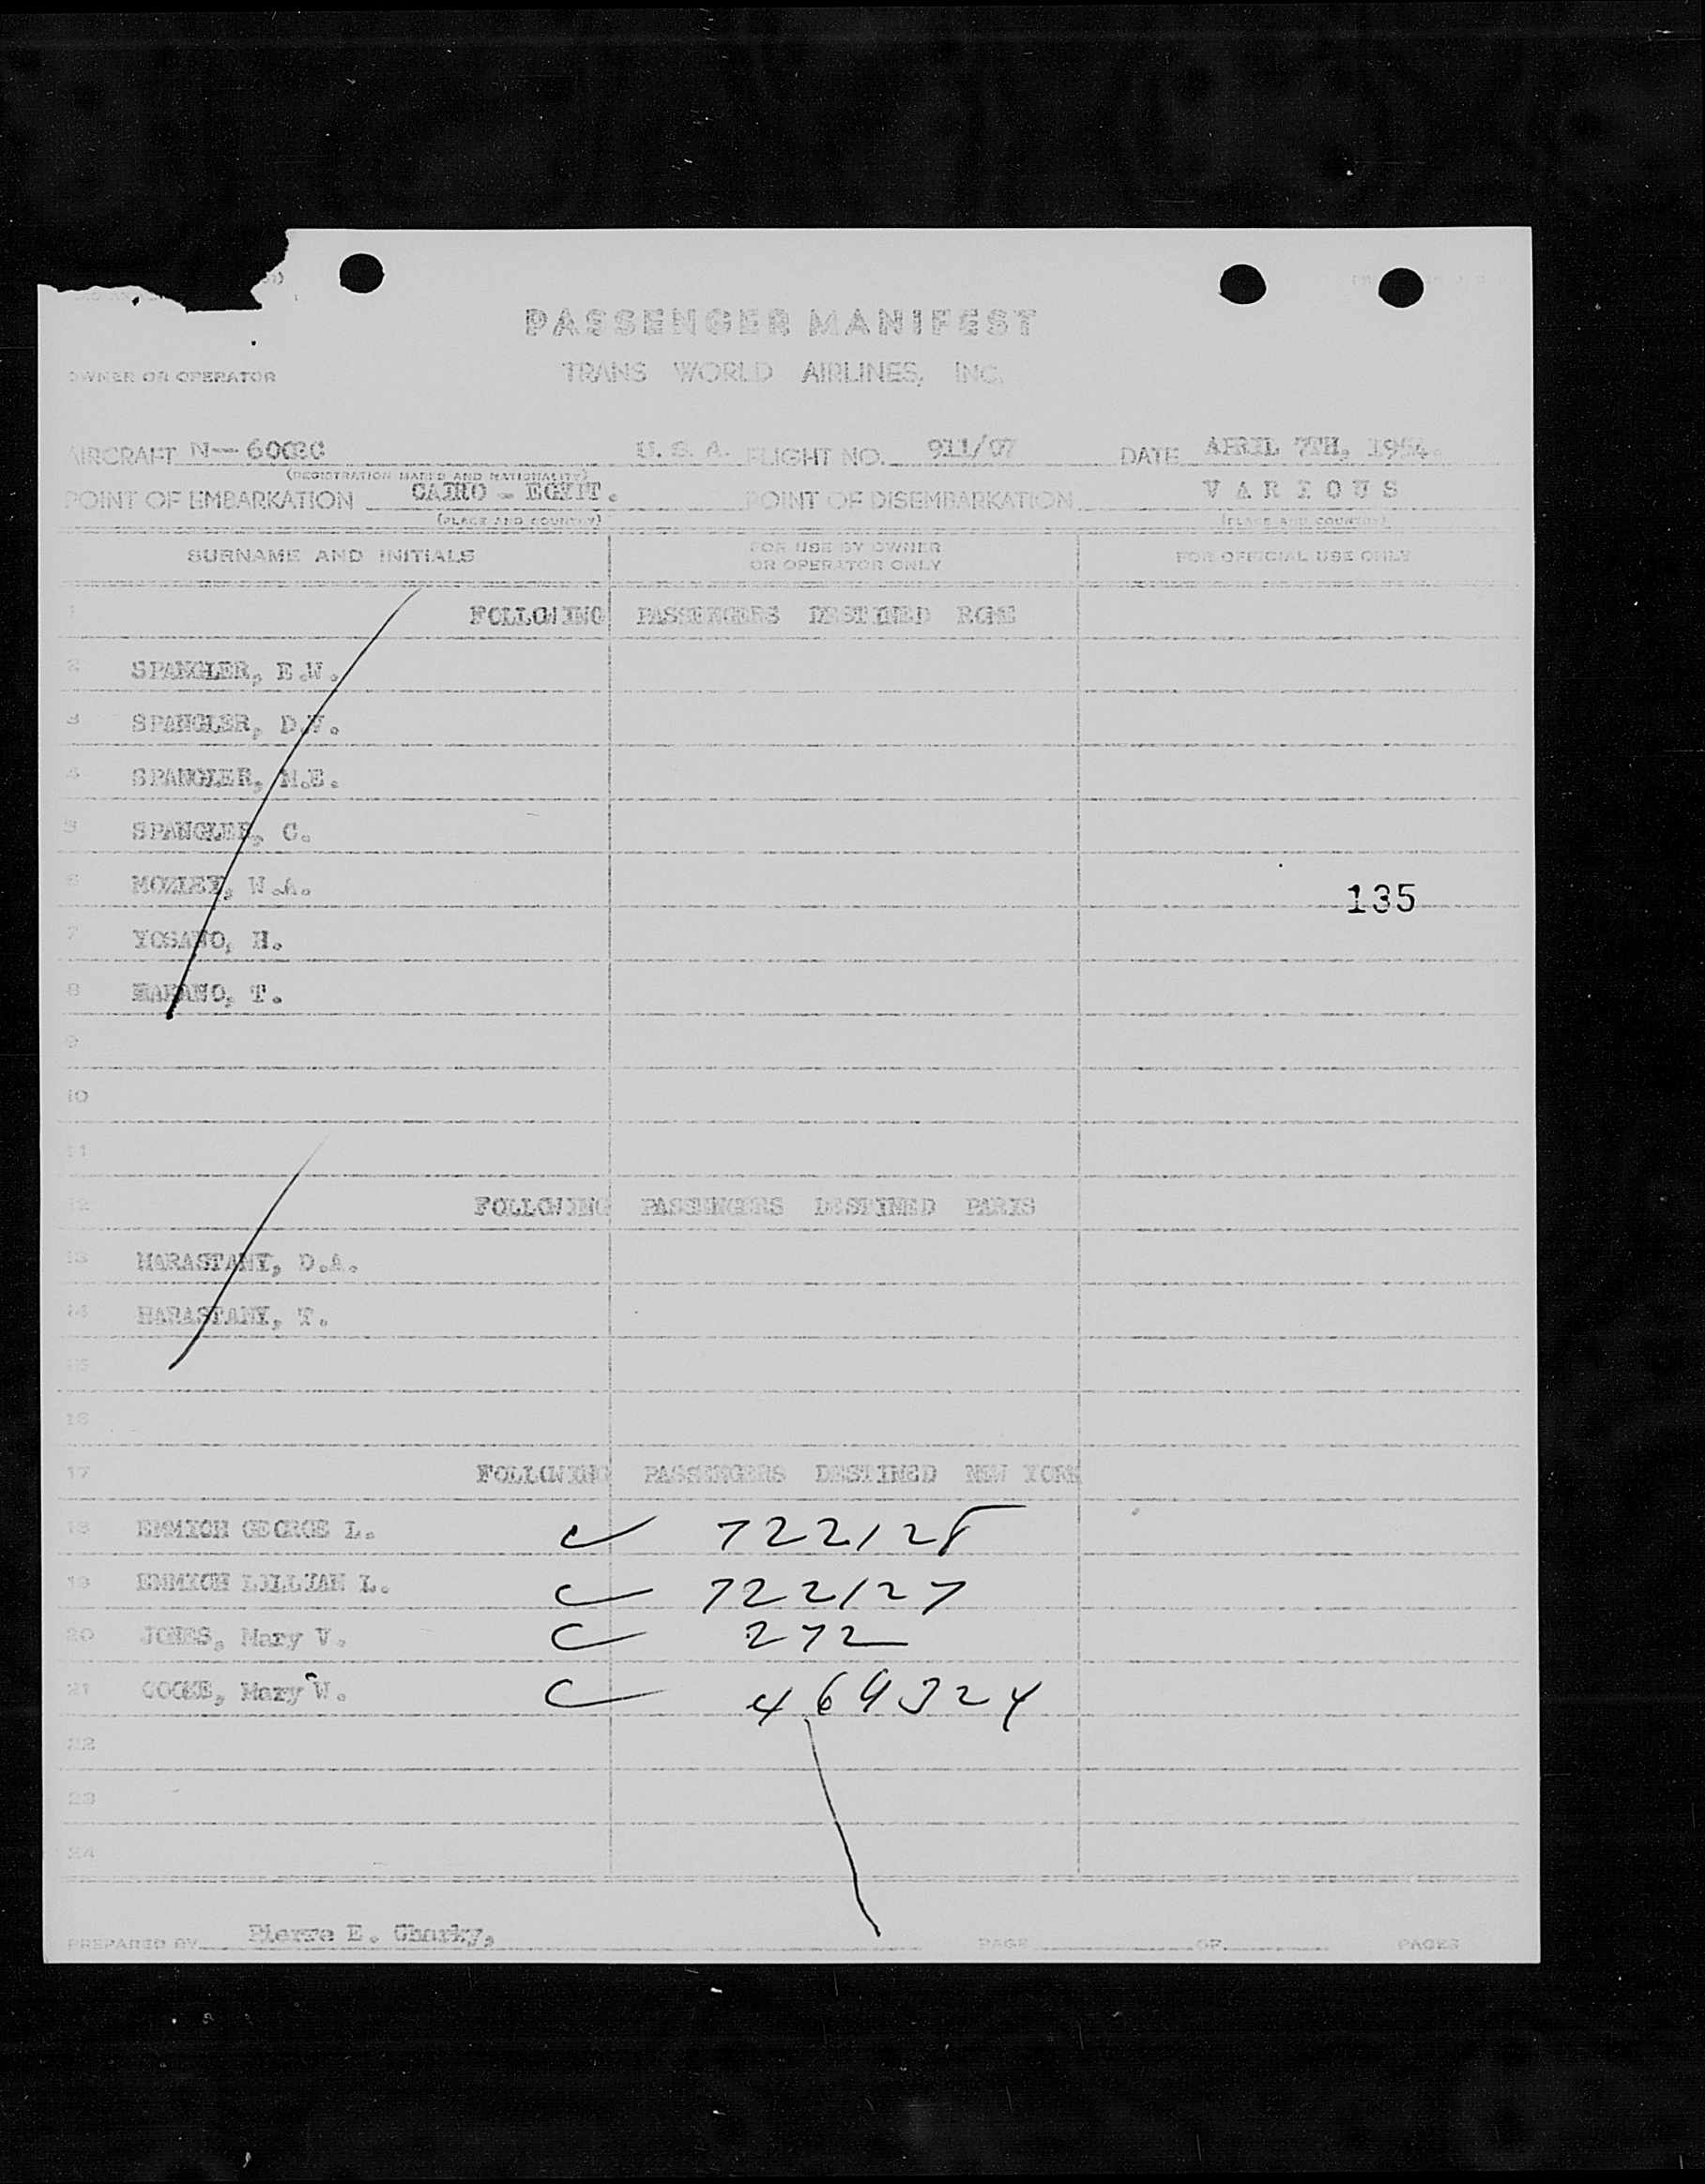 PASSENGER MANIFEST
OWNER OR OPERATOR TRANS WORLD AIRLINES, INC.
AIRCRAFT N- U. S. A. FLIGHT NO. 911/07 DATE APRIL 7TH, 1954.
(REGISTRATION MARKS AND NATIONALITY)
POINT OF EMBARKATION CAIRO - EGYPT. POINT OF DISEMBARKATION VARIOUS
(PLACE AND COUNTRY) (PLACE AND COUNTRY)
SURNAME AND INITIALS FOR USE BY OWNER OR OPERATOR ONLY FOR OFFICIAL USE ONLY
1 FOLLOWING PASSENGERS DESTINED ROME
2 SPANGLER, E.W.
3 SPANGLER, D.W.
4 SPANGLER, M.E.
5 SPANGLER, C.
6 MOZLEY, W.A. 135
7 YOSANO, H.
8 T.
9
10
11
12 FOLLOWING PASSENGERS DESTINED PARIS
13 HARASTANY, D.A.
14 HARASTANY, T.
15
16
17 FOLLOWING PASSENGERS DESTINED NEW YORK
18 EMMICH GEORGE L. 722128
19 EMMICH LILLIAN L. 722127
20 JONES, Mary V. 272
21 COCKE, Mary W. 469324
22
23
24
PREPARED BY Pierre E. Gharky, PAGE OF PAGES